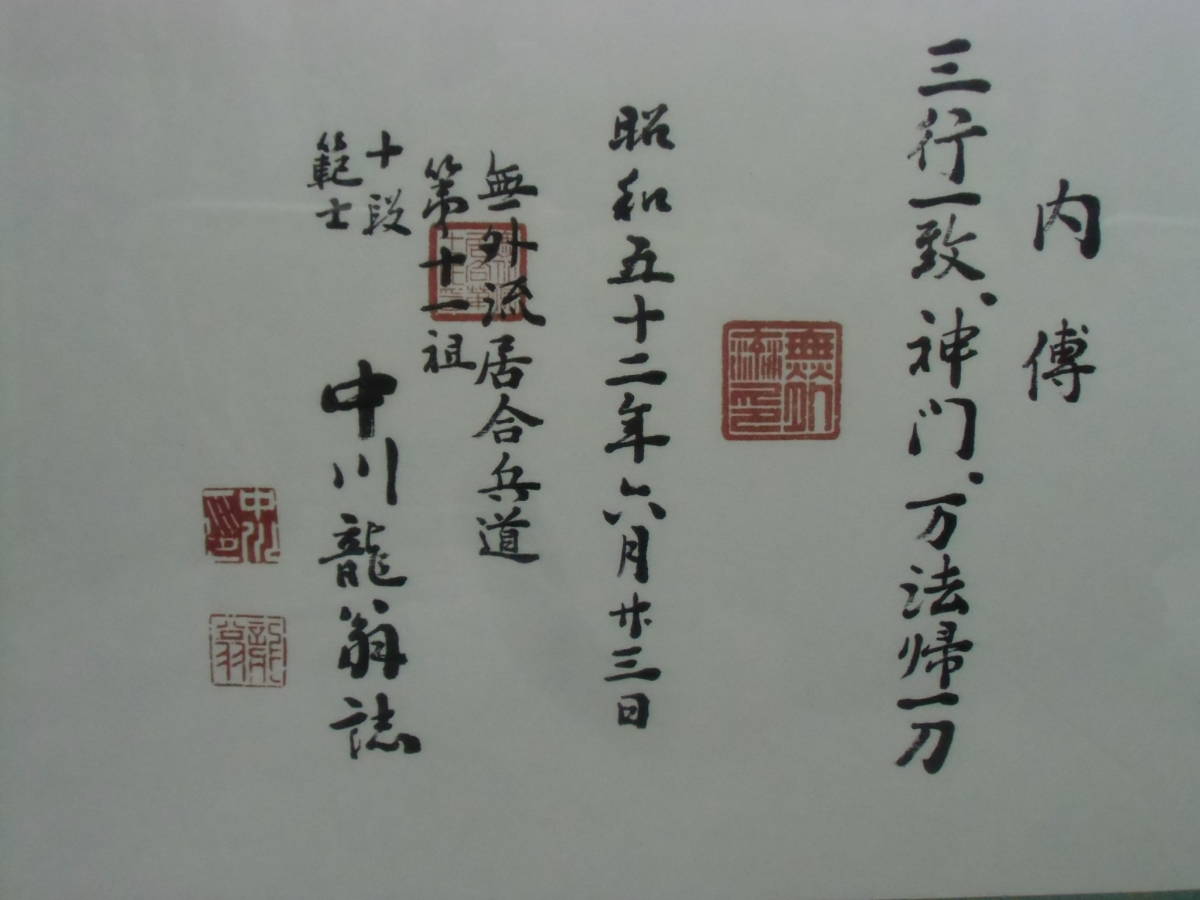 内傳
三行一致、神门、万法帰一刀
無外流印
昭和五十二年六月廿三日
無外流居合兵道
第十一祖
十段
範士
中川龍翁誌
中川
龍翁